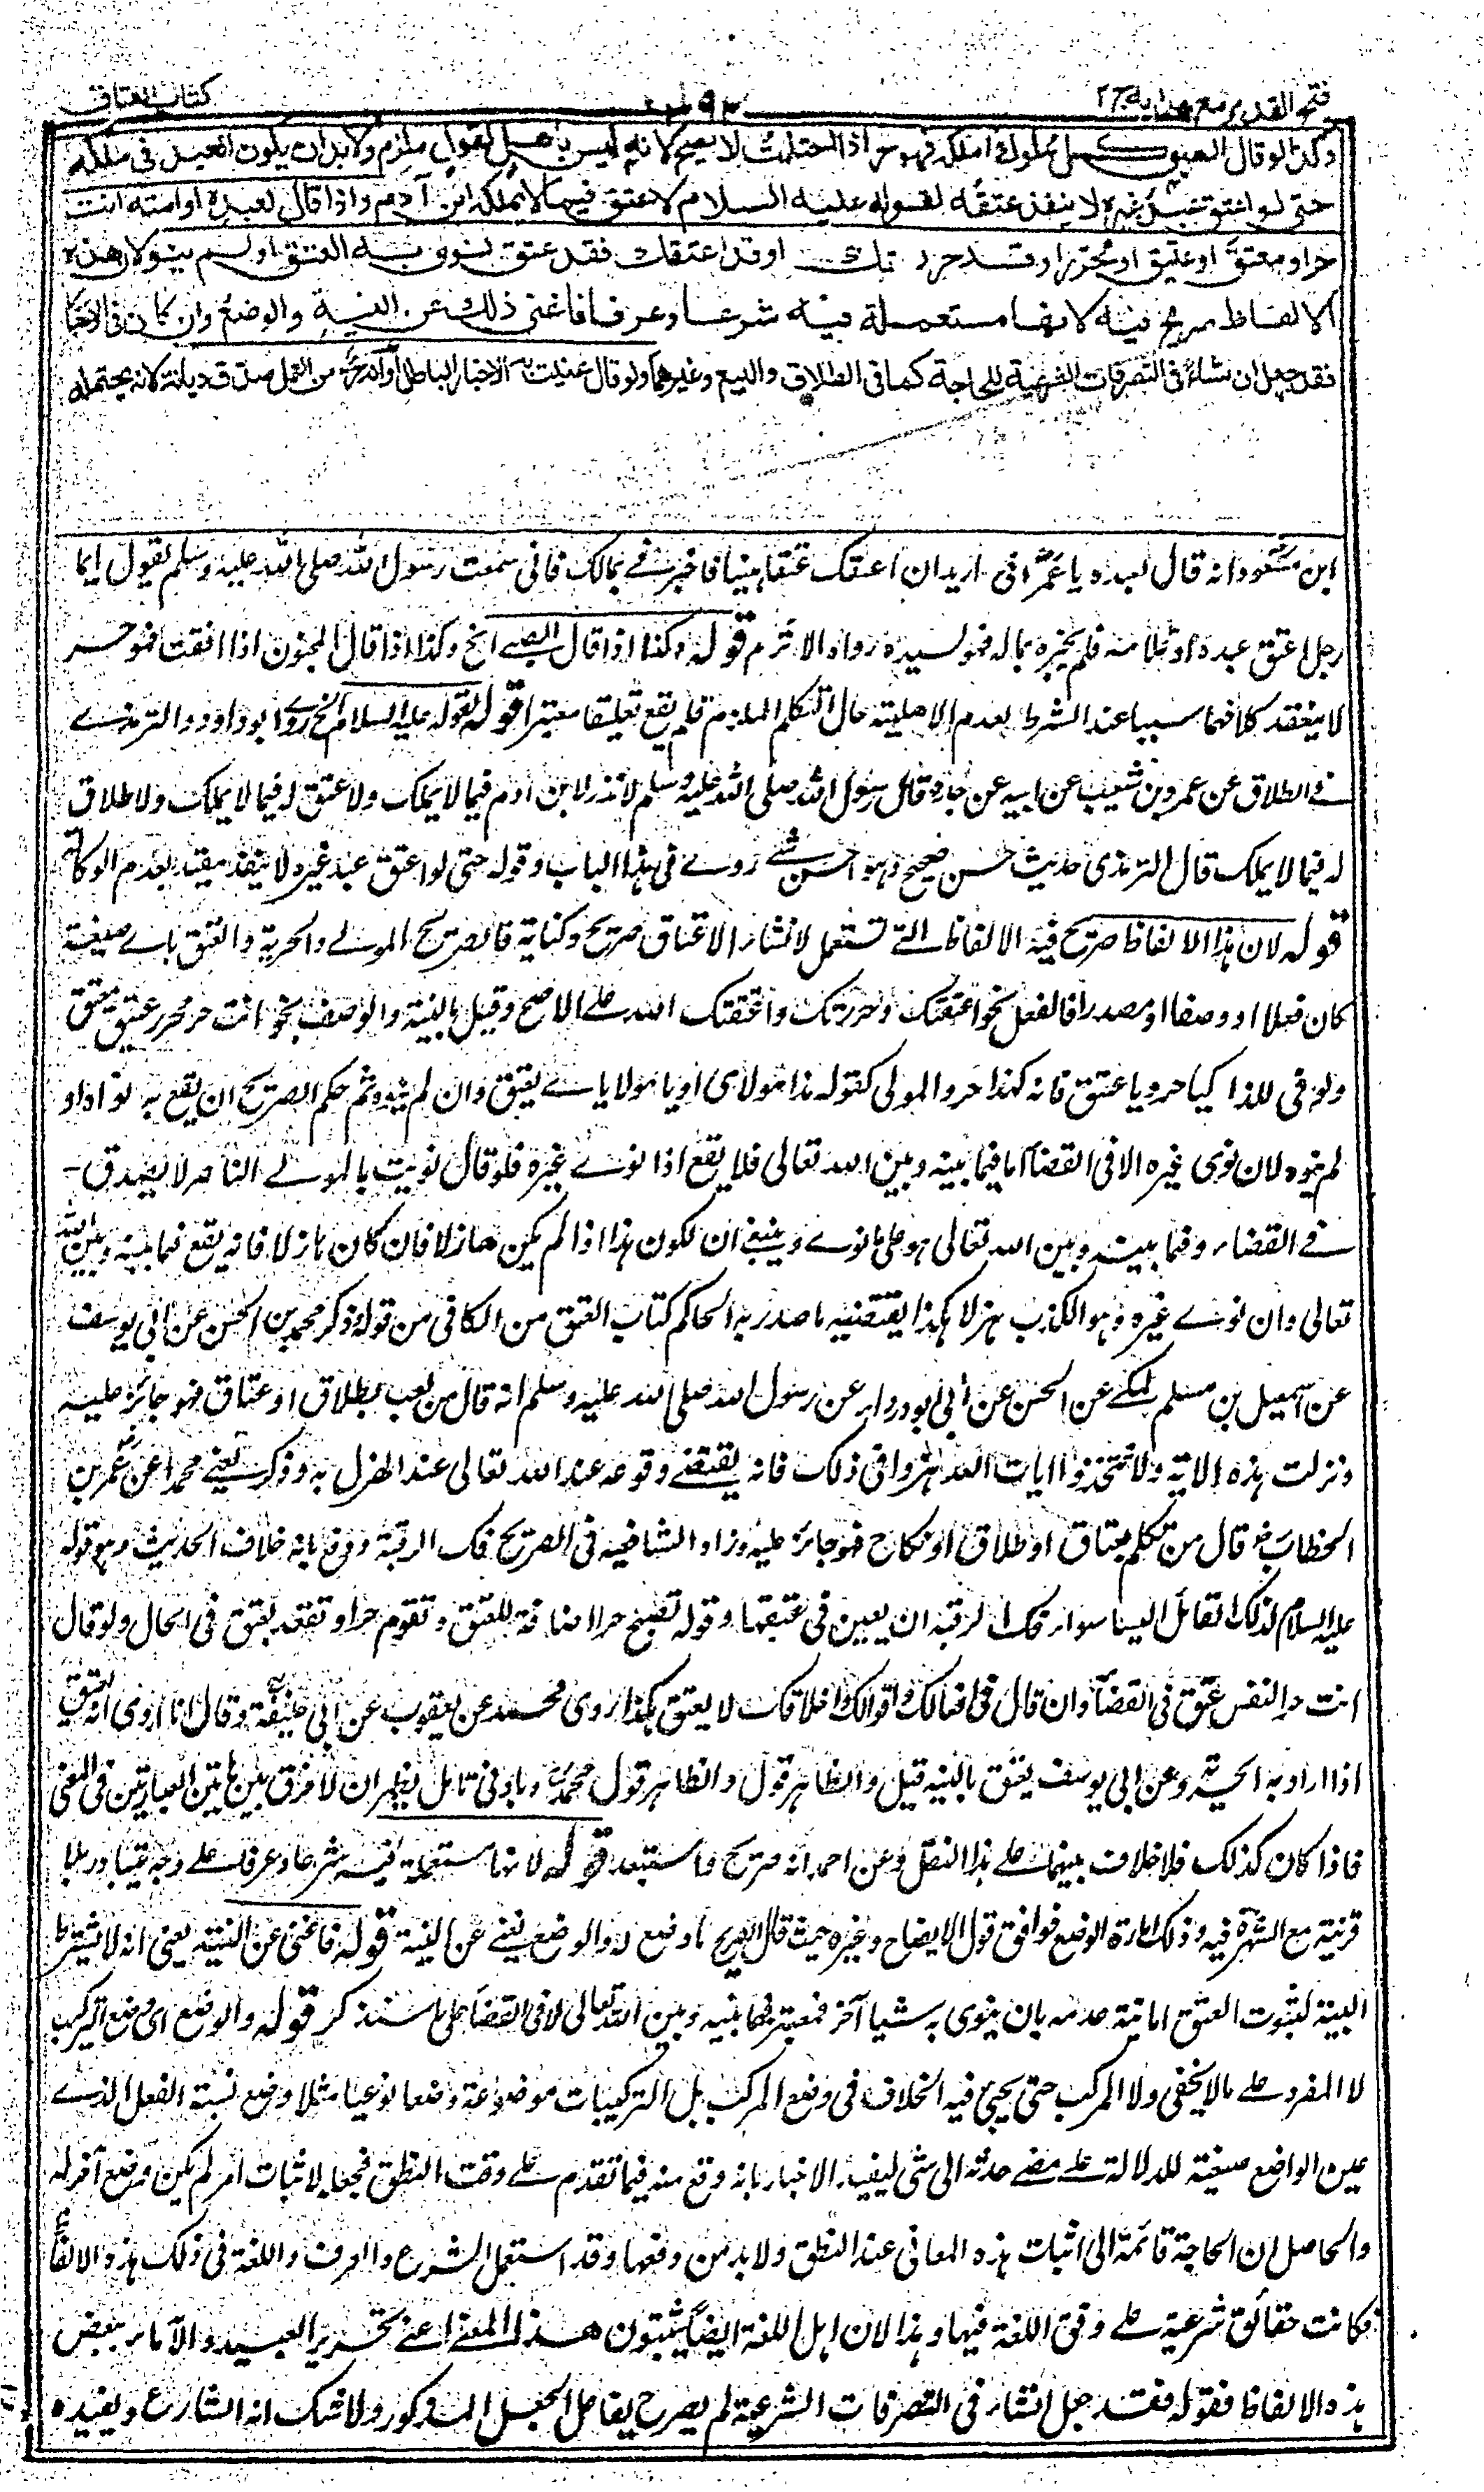 فتح القدير مع هدايه ج٢
كتاب العتاق
وكذا لو قال الصبي كل مملوك املكه فهو حر اذا احتلمت لا يصح لانه ليس باهل لقول ملزم ولا بد ان يكون العبد في ملكه
حتى لو اعتق عبد غيره لا ينفذ عتقه لقوله عليه السلام لا عتق فيما لا يملكه ابن آدم واذا قال لعبده او امته انت
حر او معتق او عتيق او محرر او قد حررتك او قد اعتقتك فقد عتق نوى به العتق او لم ينو لان هذه
الالفاظ صريح فيه لانها مستعملة فيه شرعا وعرفا فاغنى ذلك عن النية والوضع وان كان في الاخبار
فقد جعل انشاء في التصرفات الشرعية للحاجة كما في الطلاق والبيع وغيرهما ولو قال عنيت به الاخبار الباطل او انه حر من العمل صدق ديانة لانه يحتمله
ابن مسعود انه قال لعبده يا عمير اني اريد ان اعتقك عتقا هنيا فاخبرني بمالك فاني سمعت رسول الله صلى الله عليه وسلم يقول ايما
رجل اعتق عبده او غلامه فلم يخبره بماله فهو لسيده رواه الاثرم قوله وكذا اذا قال الصبي الخ وكذا اذا قال المجنون اذا افقت فهو حر
لا ينعقد كلامهما سببا عند الشرط لعدم الاهلية حال التكلم الملزم فلم يقع تعليقا معتبرا قوله لقوله عليه السلام الخ روى ابو داود والترمذي
في الطلاق عن عمرو بن شعيب عن ابيه عن جده قال رسول الله صلى الله عليه وسلم لا نذر لابن آدم فيما لا يملك ولا عتق له فيما لا يملك ولا طلاق
له فيما لا يملك قال الترمذي حديث حسن صحيح وهو احسن شئ روى في هذا الباب وقوله حتى لو اعتق عبد غيره لا ينفذ مقيد بعدم الوكالة
قوله لان هذه الالفاظ صريح فيه الالفاظ التي تستعمل لانشاء الاعتاق صريح وكناية فالصريح المولى والحرية والعتق باي صيغة
كان فعلا او وصفا او مصدرا فالفعل نحو اعتقتك وحررتك واعتقك الله على الاصح وقيل بالنية والوصف نحو انت حر محرر عتيق معتق
ولو في الندا كيا حر ويا عتيق فانه كهذا حر والمولى كقوله هذا مولاي او يا مولاي يعتق وان لم ينوه ثم حكم الصريح ان يقع به نواه او
لم ينوه لان نوى غيره الا في القضاء اما فيما بينه وبين الله تعالى فلا يقع اذا نوى غيره فلو قال نويت بالمولى الناصر لا يصدق
في القضاء وفيما بينه وبين الله تعالى هو على ما نوى وينبغي ان يكون هذا اذا لم يكن هازلا فان كان هازلا فانه يقع فيما بينه وبين الله
تعالى وان نوى غيره وهو الكذب هزلا هكذا يقتضيه ما صدر به الحاكم كتاب العتق من الكافي من قوله وذكر محمد بن الحسن عن ابي يوسف
عن اسمعيل بن مسلم المكي عن الحسن عن ابي الدرداء عن رسول الله صلى الله عليه وسلم انه قال من لعب بطلاق او عتاق فهو جائز عليه
ونزلت هذه الآية ولا تتخذوا آيات الله هزوا في ذلك فانه يقتضي وقوعه عند الله تعالى عند الهزل به وذكر يعني محمدا عن عمر بن
الخطاب رض قال من تكلم بعتاق او طلاق او نكاح فهو جائز عليه وزاد الشافعيه في الصريح فك الرقبة ودفع بانه خلاف الحديث وهو قوله
عليه السلام لذلك القائل اليسا سواء فك الرقبة ان يعين في عتقها وقوله تصبح حرا اضافة للعتق وتقوم حرا وتقعد يعتق في الحال ولو قال
انت حر النفس عتق في القضاء وان قال في افعالك واقوالك واخلاقك لا يعتق هكذا روى محمد عن يعقوب عن ابي حنيفة وقال انا اروى انه يعتق
اذا اراد به الحرية وعن ابي يوسف يعتق بالنية قيل والظاهر قول والظاهر قول محمد وبادنى تامل يظهر ان لا فرق بين هاتين العبارتين في المعنى
فاذا كان كذلك فلا خلاف بينهما على هذا النقل وعن احمد انه صريح واستبعد قوله لانها مستعملة فيه شرعا وعرفا على وجه يتبادر بلا
قرينة مع الشهرة فيه وذلك امارة الوضع فوافق قول الايضاح وغيره حيث قال الصريح ما وضع له والوضع يغني عن النية قوله فاغنى عن النية يعني انه لا يشترط
النية لثبوت العتق اما نية عدمه بان ينوي به شيا آخر فمعتبر فيما بينه وبين الله تعالى لا في القضاء على ما سنذكر قوله والوضع اي وضع التركيب
لا المفرد على ما لا يخفى ولا المركب حتى يجئ فيه الخلاف في وضع المركب بل التركيبات موضوعة وضعا نوعيا مثلا وضع نسبة الفعل الذي
عين الواضع صيغته للدلالة على مضي حدثه الى شئ ليفيد الاخبار بانه وقع منه فيما تقدم على وقت النطق فجعل لاثبات امر لم يكن وضع آخر له
والحاصل ان الحاجة قائمة الى اثبات هذه المعاني عند النطق ولا بد من دفعها وقد استعمل الشرع والعرف واللغة في ذلك هذه الالفاظ
فكانت حقائق شرعية على وفق اللغة فيها وهذا لان اهل اللغة ايضا يثبتون هذا المعنى اعني تحرير العبيد والاماء ببعض
هذه الالفاظ فقوله فقد جعل انشاء في التصرفات الشرعية لم يصرح بفاعل الجعل المذكور ولا شك انه الشارع ويفيده